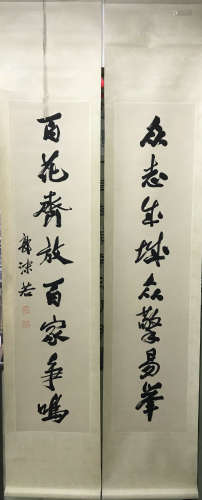 众志成城众擎易举
百花齊放百家争鸣
郭沫若